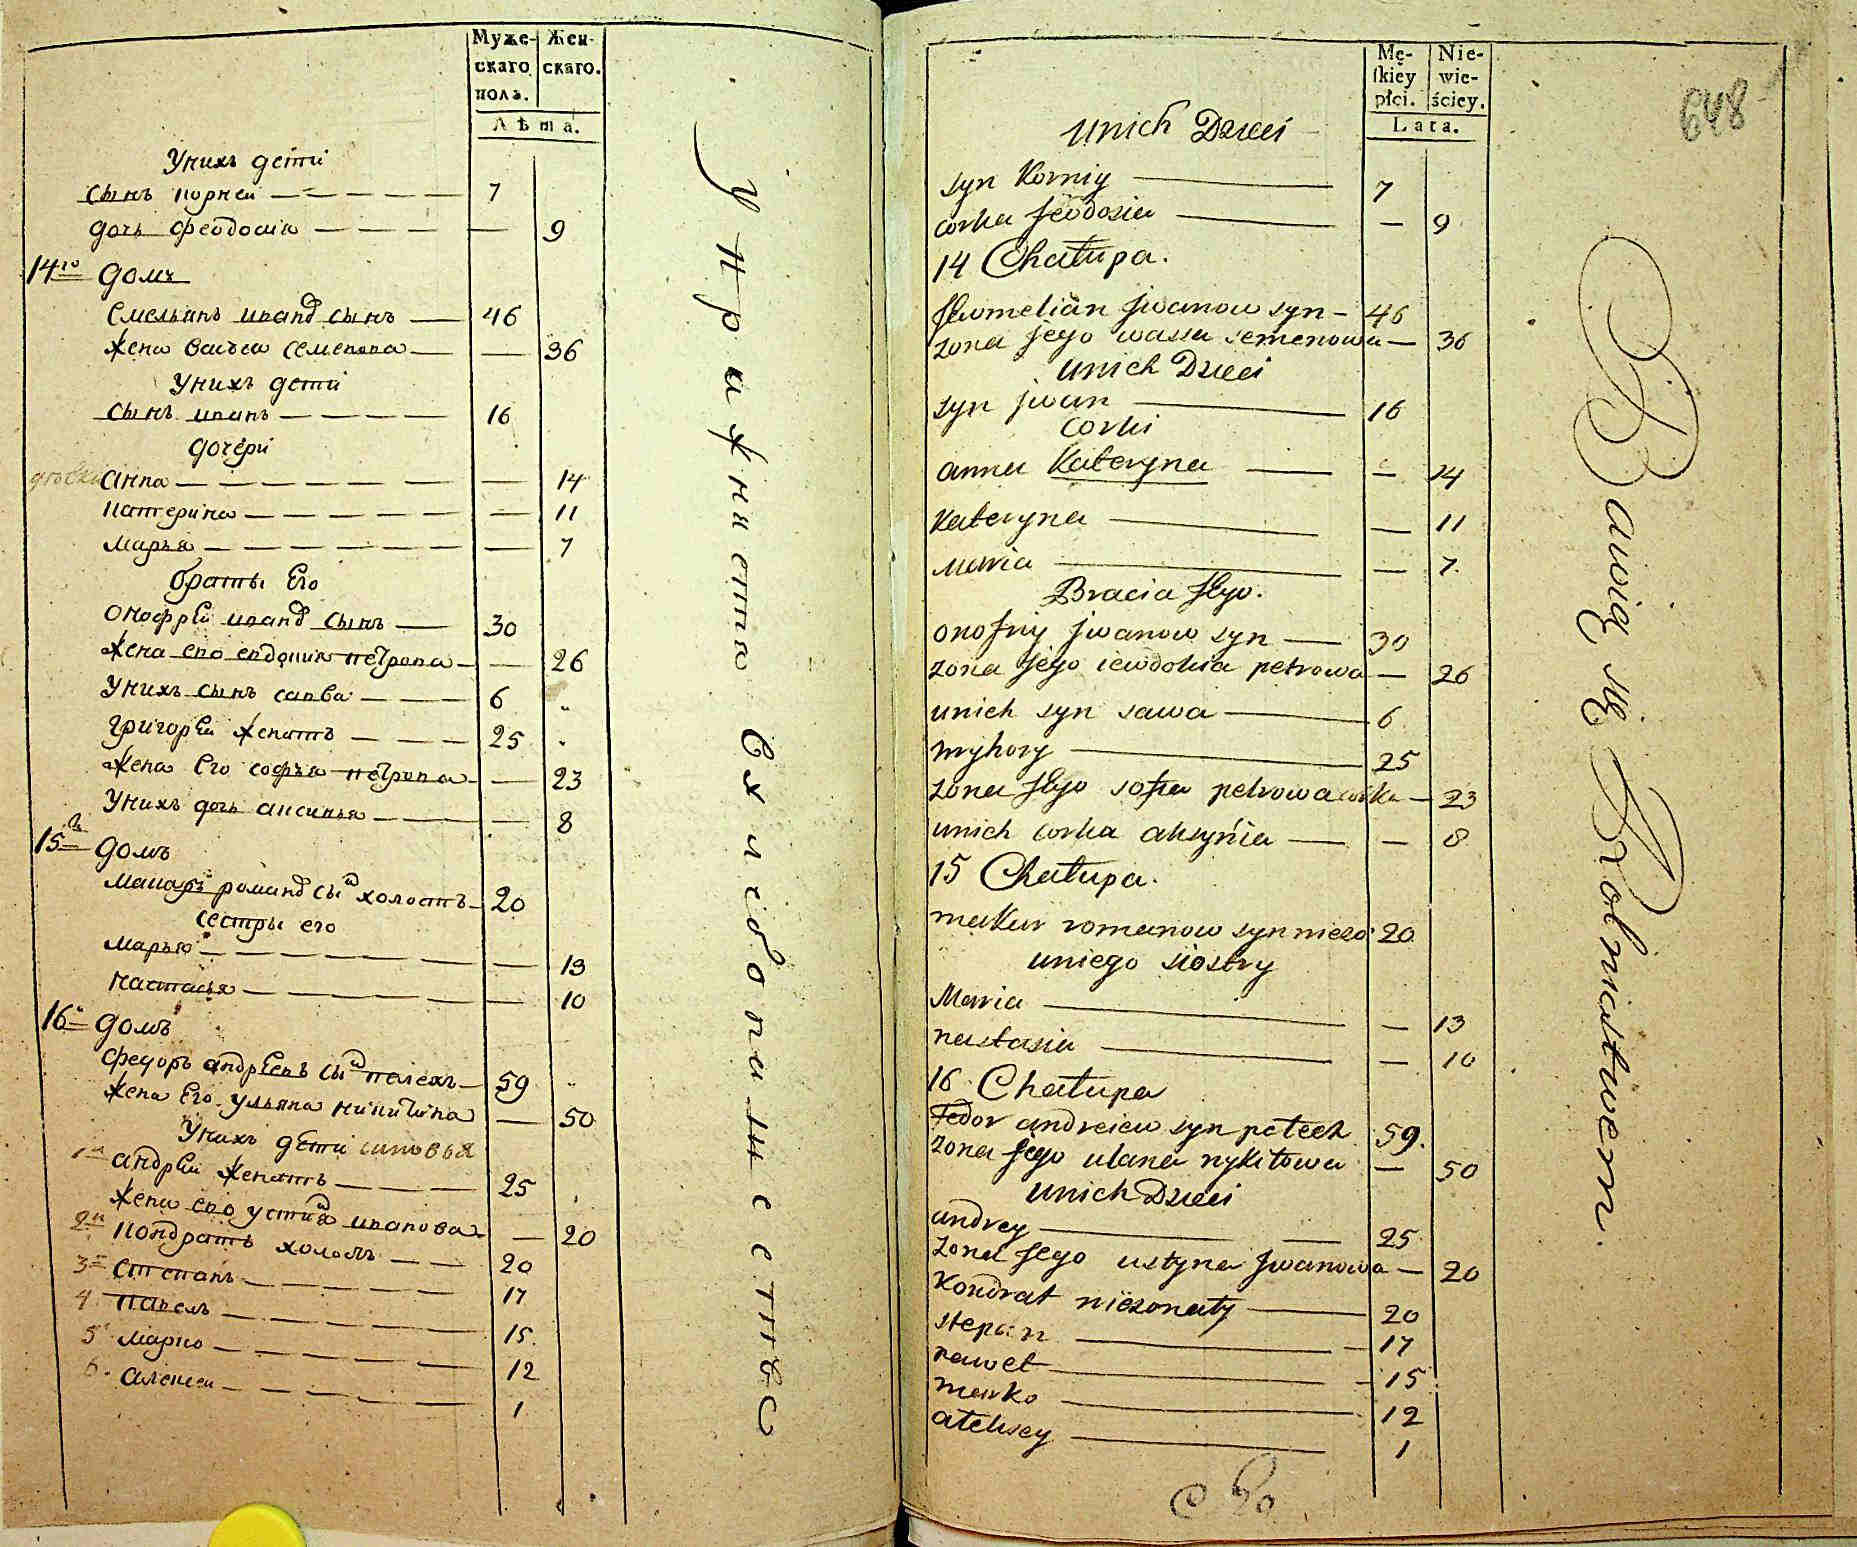 Муже-
скаго
полъ.
Жен-
скаго.
Лѣта.
Унихъ дети
сынъ корнеи 7
дочь феодосия — 9
14го домъ
Емельянъ иванд сынъ 46
жена васъса семенова — 36
Унихъ дети
сынъ иванъ 16
дочери
анна — 14
катерина — 11
марья — 7
братьи Его
онофрей иванд сынъ 30
жена его евдокия петрова — 26
Унихъ сынъ савва 6
григорей женатъ 25
жена Его софья петрова — 23
Унихъ дочь аксинья — 8
15й домъ
макаръ романд сынъ холостъ 20
сестры его
марья — 13
настасья — 10
16й домъ
федоръ андреевъ сынъ пелехъ 59
жена Его ульяна никитина — 50
Унихъ дети синовья
1й андрей женатъ 25
жена его устиня иванова — 20
2й кондратъ холостъ 20
3й степанъ 17
4 павелъ 15
5 марко 12
6 алексеи 1
Упражняется в хлебопашестве
Mę-
skiey
płci.
Nie-
wie-
ściey.
Lata.
648
unich Dzieci
syn Korniy 7
corka feodosia — 9
14 Chałupa.
Jemelian Jwanow syn 46
zona Jego wassa semenowa — 36
unich Dzieci
syn jwan 16
corki
anna Kateryna — 14
Kateryna — 11
maria — 7
Bracia Jego.
onofriy Jwanow syn 30
zona Jego iewdokia petrowa — 26
unich syn sawa 6
hryhory 25
zona Jego sofia petrowa corka — 23
unich corka aksyńia — 8
15 Chałupa.
makar romanow syn niezo 20
uniego siostry
Maria — 13
nastasia — 10
16 Chałupa
Fedor andreiew syn pełech 59.
zona Jego ulana nykitowa — 50
unich Dzieci
andrey 25
zona Jego ustyna Jwanowa — 20
Kondrat niezonaty 20
stepan 17
paweł 15
marko 12
ałeksey 1
Bawią się Rolnictwem.